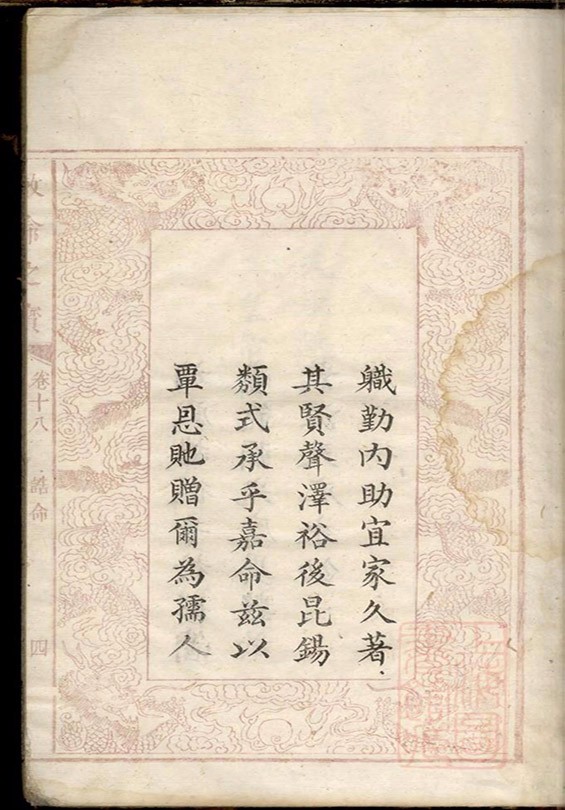 軄勤内助宜家久著
其賢聲澤裕後昆錫
𩔖式承乎嘉命兹以
覃恩貤贈爾為孺人
敕命之寳
卷十八
誥命
四